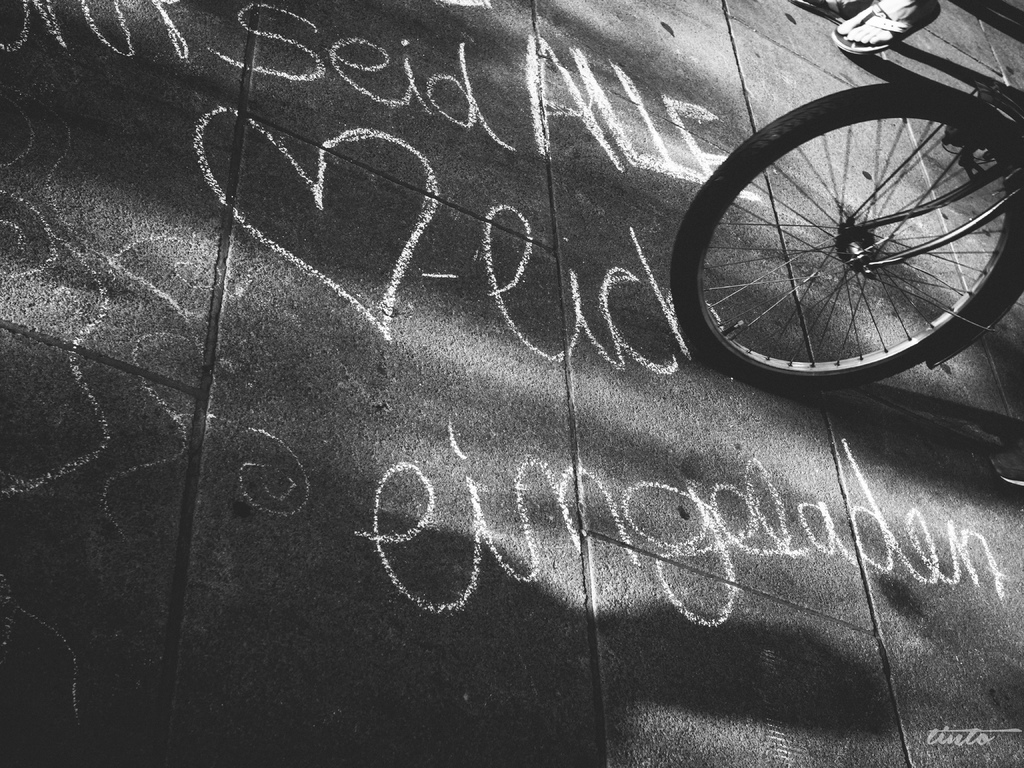 seid ALLE
♡-lich
eingeladen
tinto